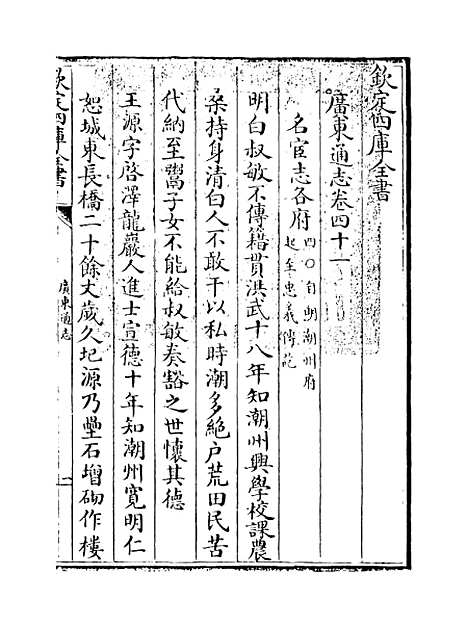 欽定四庫全書
廣東通志卷四十一
名宦志各府四〇自明潮州府
起至忠義傳訖
明白叔敏不傳籍貫洪武十八年知潮州興學校課農
桑持身清白人不敢干以私時潮多絶戸荒田民苦
代納至鬻子女不能給叔敏奏豁之世懷其德
王源字啓澤龍巖人進士宣德十年知潮州寛明仁
恕城東長橋二十餘丈歲久圮源乃壘石增砌作樓
欽定四庫全書
廣東通志
一